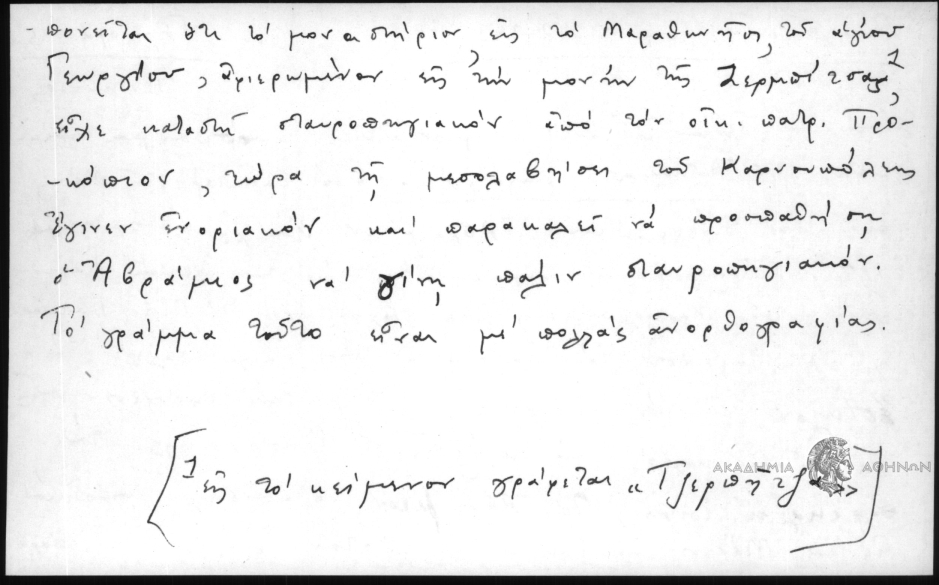 -πονεῖται ὅτι τό μοναστήριον εἰς τό Μαραθωνῆσι, τοῦ ἁγίου
Γεωργίου, ἀφιερωμένον εἰς τήν μονήν τῆς Ζερμπίτσας¹,
εἶχε καταστῆ σταυροπηγιακόν ἀπό τόν οἰκ. πατρ. Προ-
-κόπιον, τώρα τῇ μεσολαβήσει τοῦ Καρυουπόλεως
ἔγινεν ἐνοριακόν καί παρακαλεῖ νά προσπαθήσῃ
ὁ Ἀβράμιος νά γίνῃ πάλιν σταυροπηγιακόν.
Τό γράμμα τοῦτο εἶναι μέ πολλάς ἀνορθογραφίας.
[¹ εἰς τό κείμενον γράφεται «Τζερπήτζα»]
ΑΚΑΔΗΜΙΑ ΑΘΗΝΩΝ